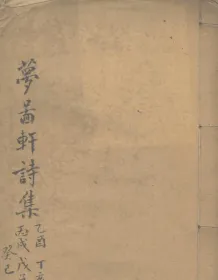 夢啚軒詩集
乙酉 丁亥
丙戌 戊子
癸巳